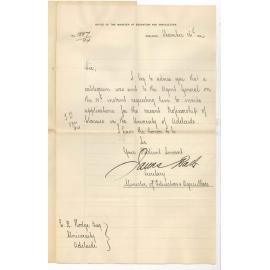 OFFICE OF THE MINISTER OF EDUCATION AND AGRICULTURE,
ADELAIDE, December
Sir,
I beg to advise you that a
cablegram was sent to the Agent General on
the instant requesting him to invite
applications for the vacant Professorship of
in the University of Adelaide.
I have the honor to be
Sir
Your Obedient Servant
Secretary
Minister of Education & Agriculture
C. R. Hodge Esq
University
Adelaide